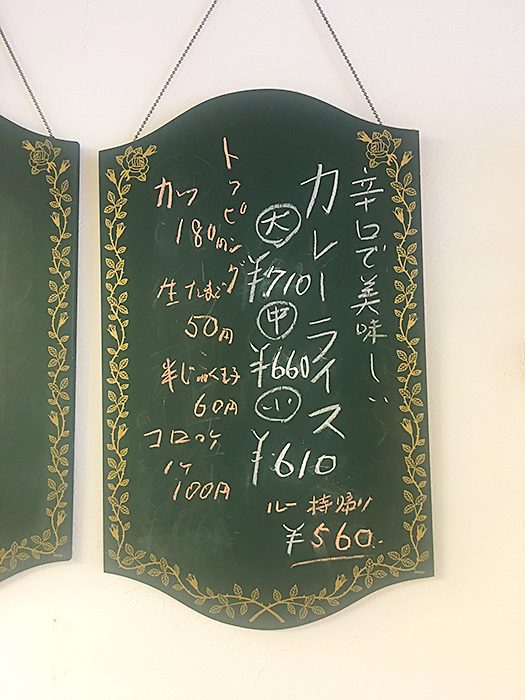 辛口で美味しい
カレーライス
大
¥710
中
¥660
小
¥610
ルー持帰り
¥560-
トッピング
カツ
180円
生たまご
50円
半じゅく玉子
60円
コロッケ
1ケ
100円